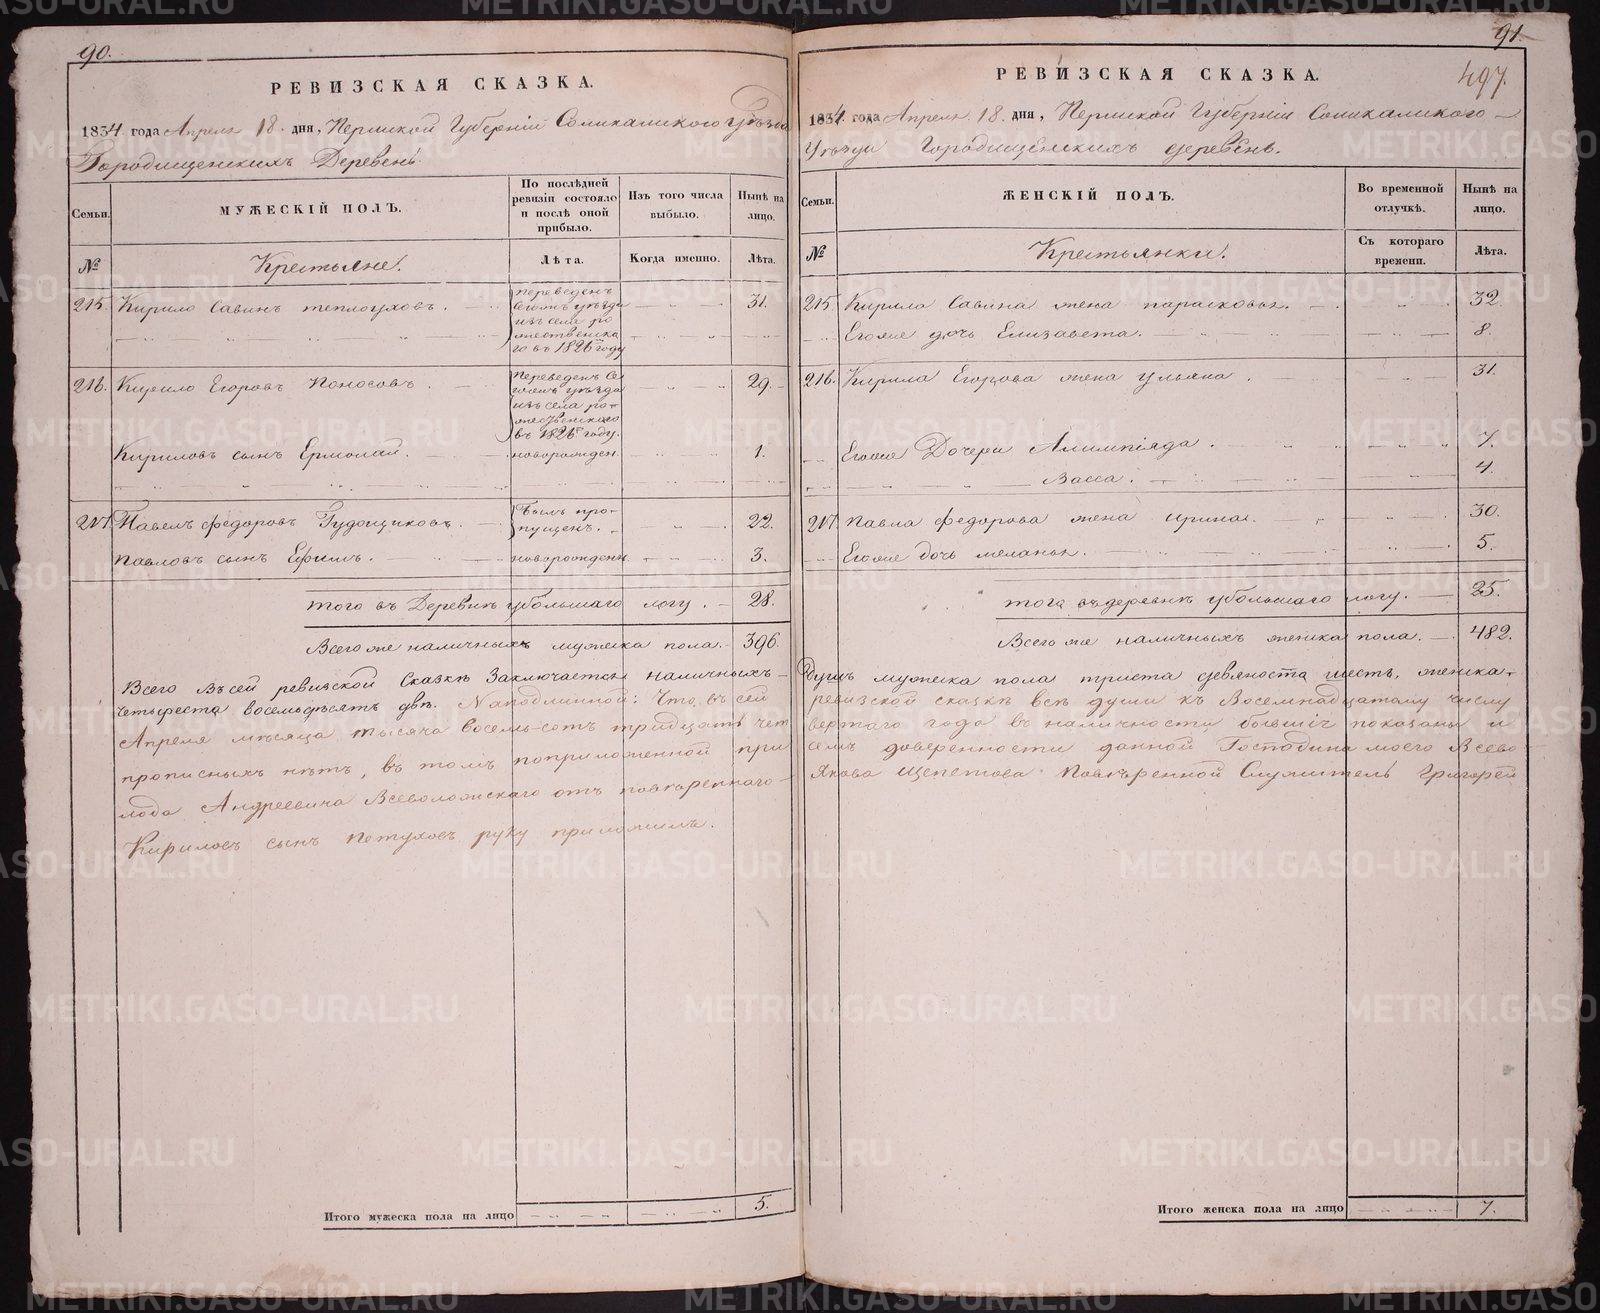 90.
РЕВИЗСКАЯ СКАЗКА.
1834 года Апреля 18. дня, Пермской Губерніи Соликамского Уѣзда
Городищенскихъ Деревень
Семьи.
МУЖЕСКІЙ ПОЛЪ.
По послѣдней ревизіи состояло и послѣ оной прибыло.
Изъ того числа выбыло.
Нынѣ на лицо.
№
Крестьяне.
Лѣта.
Когда именно.
Лѣта.
215. Кирило Савинъ теплоуховъ. переведенъ 31.
сегожъ уѣзда
изъ села ро
жественска
го въ 1826 году
216. Кирило Егоровъ Поносовъ. Переведенъ Се 29.
гожъ уѣзда
изъ села ро-
жественского
въ 1826 году.
Кириловъ сынъ Ермолай. новорожден. 1.
217. Павелъ федоровъ Гудощиковъ. Былъ про- 22.
пущенъ.
Павловъ сынъ Ефимъ. новорожденн 3.
того въ Деревнѣ убольшаго логу. 28.
Всего же наличныхъ мужска пола. 396.
Всего Въсей ревизской Сказкѣ Заключается наличныхъ
Четыреста восемьдесятъ двѣ. Наподлинной: Что въ сей
Апреля мѣсяца тысяча восемь-сотъ тридцать чет
прописныхъ нѣтъ, въ томъ поприложенной при
лода Андреевича Всеволожскаго отъ повѣреннаго
Кириловъ сынъ Петуховъ руку приложилъ.
Итого мужеска пола на лицо 5.
91.
497.
РЕВИЗСКАЯ СКАЗКА.
1834 года Апреля 18. дня, Пермской Губерніи Соликамского
Уѣзда Городищенскихъ деревень.
Семьи.
ЖЕНСКІЙ ПОЛЪ.
Во временной отлучкѣ.
Нынѣ на лицо.
№
Крестьянки.
Съ котораго времени.
Лѣта.
215. Кирила Савина жена парасковья. 32.
Егоже дочь Елизавета. 8.
216. Кирила Егорова жена ульяна. 31.
Егоже Дочери Алимпіяда. 7.
Васса. 4.
217. Павла федорова жена ирина. 30.
Егоже дочь меланья. 5.
того въдеревнѣ убольшаго логу. 25.
Всего же наличныхъ женска пола. 482.
Душъ мужеска пола триста девяноста шесть, женска
ревизской сказкѣ всѣ души къ Восемнадцатому числу
вертаго года въ наличности бывшіе показаны и
семъ доверенности данной Господина моего Всево
Якова Щепетова Повѣренной Служитель Григорей
Итого женска пола на лицо 7.
METRIKI.GASO-URAL.RU